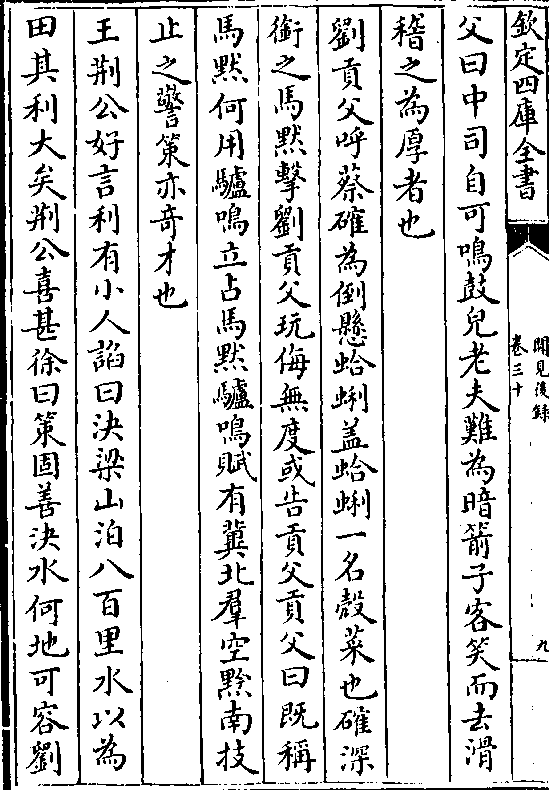 欽定四庫全書
聞見後録
卷三十
九
父曰中司自可鳴鼓兒老夫難為暗箭子客笑而去滑
稽之為厚者也
劉貢父呼蔡確為倒懸蛤蜊盖蛤蜊一名殻菜也確深
銜之馬黙擊劉貢父玩侮無度或告貢父貢父曰既稱
馬黙何用驢鳴立占馬黙驢鳴賦有冀北羣空黔南技
止之警策亦奇才也
王荆公好言利有小人謟曰決梁山泊八百里水以為
田其利大矣荆公喜甚徐曰策固善決水何地可容劉